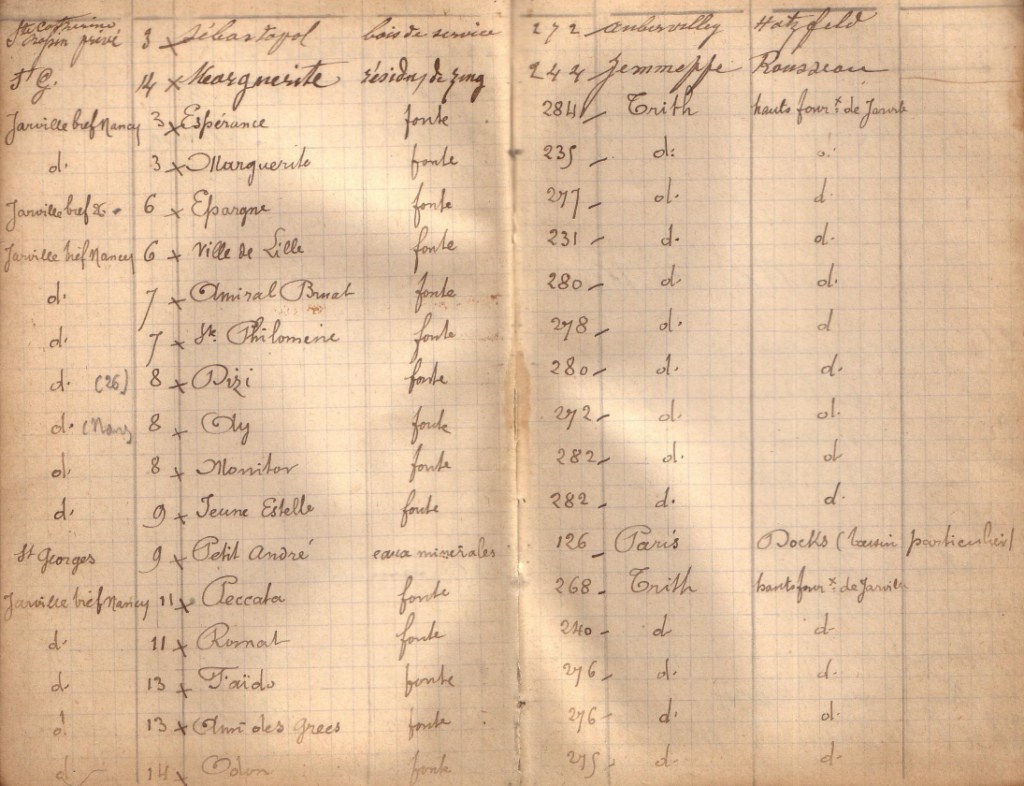 Ste Catherine
privé 3 x Sébastopol bois de service 272 Aubervilley Hatzfeld
St G. 14 x Marguerite résidu, de zing 244 Jemmeppe Rousseau
Jarville bief Nancy 3 x Espérance fonte 284 Trith hauts four.x de Jarville
d. 3 x Marguerite fonte 235 d: d.
Jarville bief 6 x Epargne fonte 277 d. d.
Jarville bief Nancy 6 x Ville de Lille fonte 231 d. d.
d. 7 x Amiral Bruat fonte 280 d. d.
d. 7 x Ste. Philomène fonte 278 d. d
d. (26) 8 x Dizi fonte 280 d. d.
d. (Nancy 8 x Ay fonte 272 d. d.
d. 8 x Monitor fonte 282 d. d
d. 9 x Jeune Estelle fonte 282 d. d.
St Georges 9 x Petit André eaux minérales 126 Paris Docks (bassin particulier)
Jarville bief Nancy 11 x Peccata fonte 268 Trith hauts four.x de Jarville
d 11 x Romat fonte 240 d d
d 13 x Taïdo fonte 276 d. d.
d 13 x Ami des Grecs fonte 276 d. d.
d 14 x Odon fonte 275 d. d.